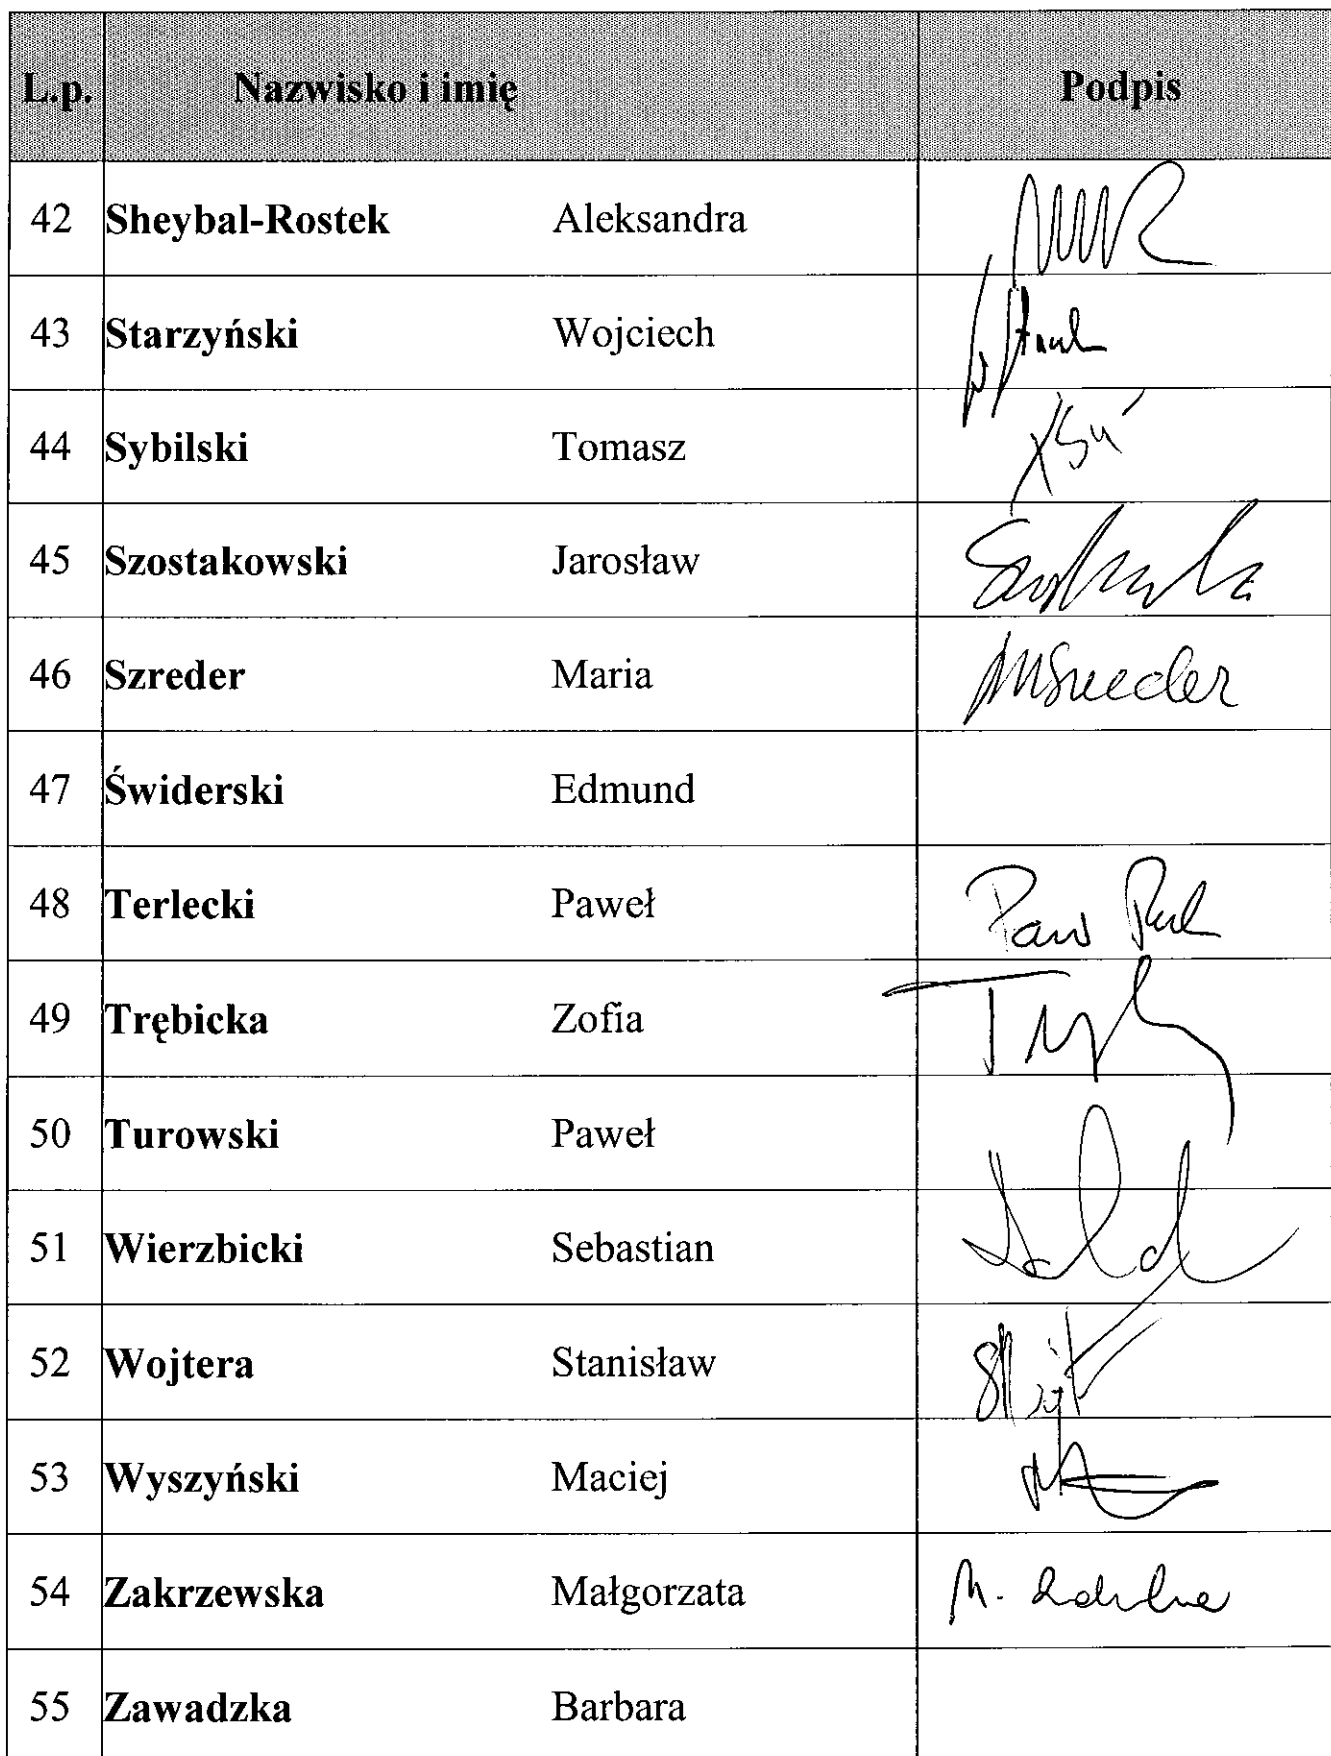 L.p. Nazwisko i imię Podpis
42 Sheybal-Rostek Aleksandra
43 Starzyński Wojciech
44 Sybilski Tomasz
45 Szostakowski Jarosław
46 Szreder Maria
47 Świderski Edmund
48 Terlecki Paweł
49 Trębicka Zofia
50 Turowski Paweł
51 Wierzbicki Sebastian
52 Wojtera Stanisław
53 Wyszyński Maciej
54 Zakrzewska Małgorzata
55 Zawadzka Barbara